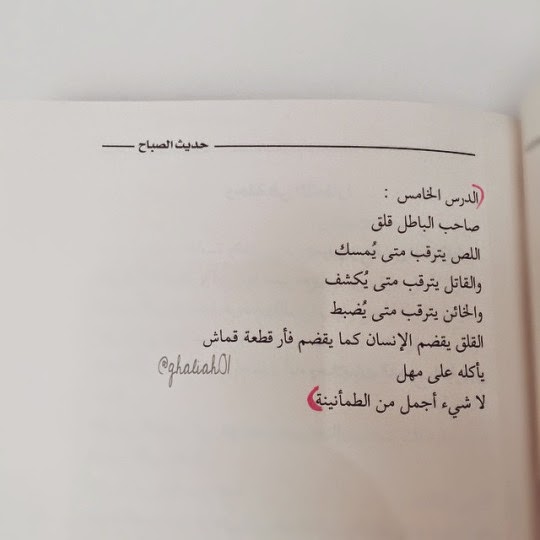 حديث الصباح
الدرس الخامس :
صاحب الباطل قلق
اللص يترقب متى يُمسك
والقاتل يترقب متى يُكشف
والخائن يترقب متى يُضبط
القلق يقضم الإنسان كما يقضم فأر قطعة قماش
يأكله على مهل
@ghaliah01
لا شيء أجمل من الطمأنينة